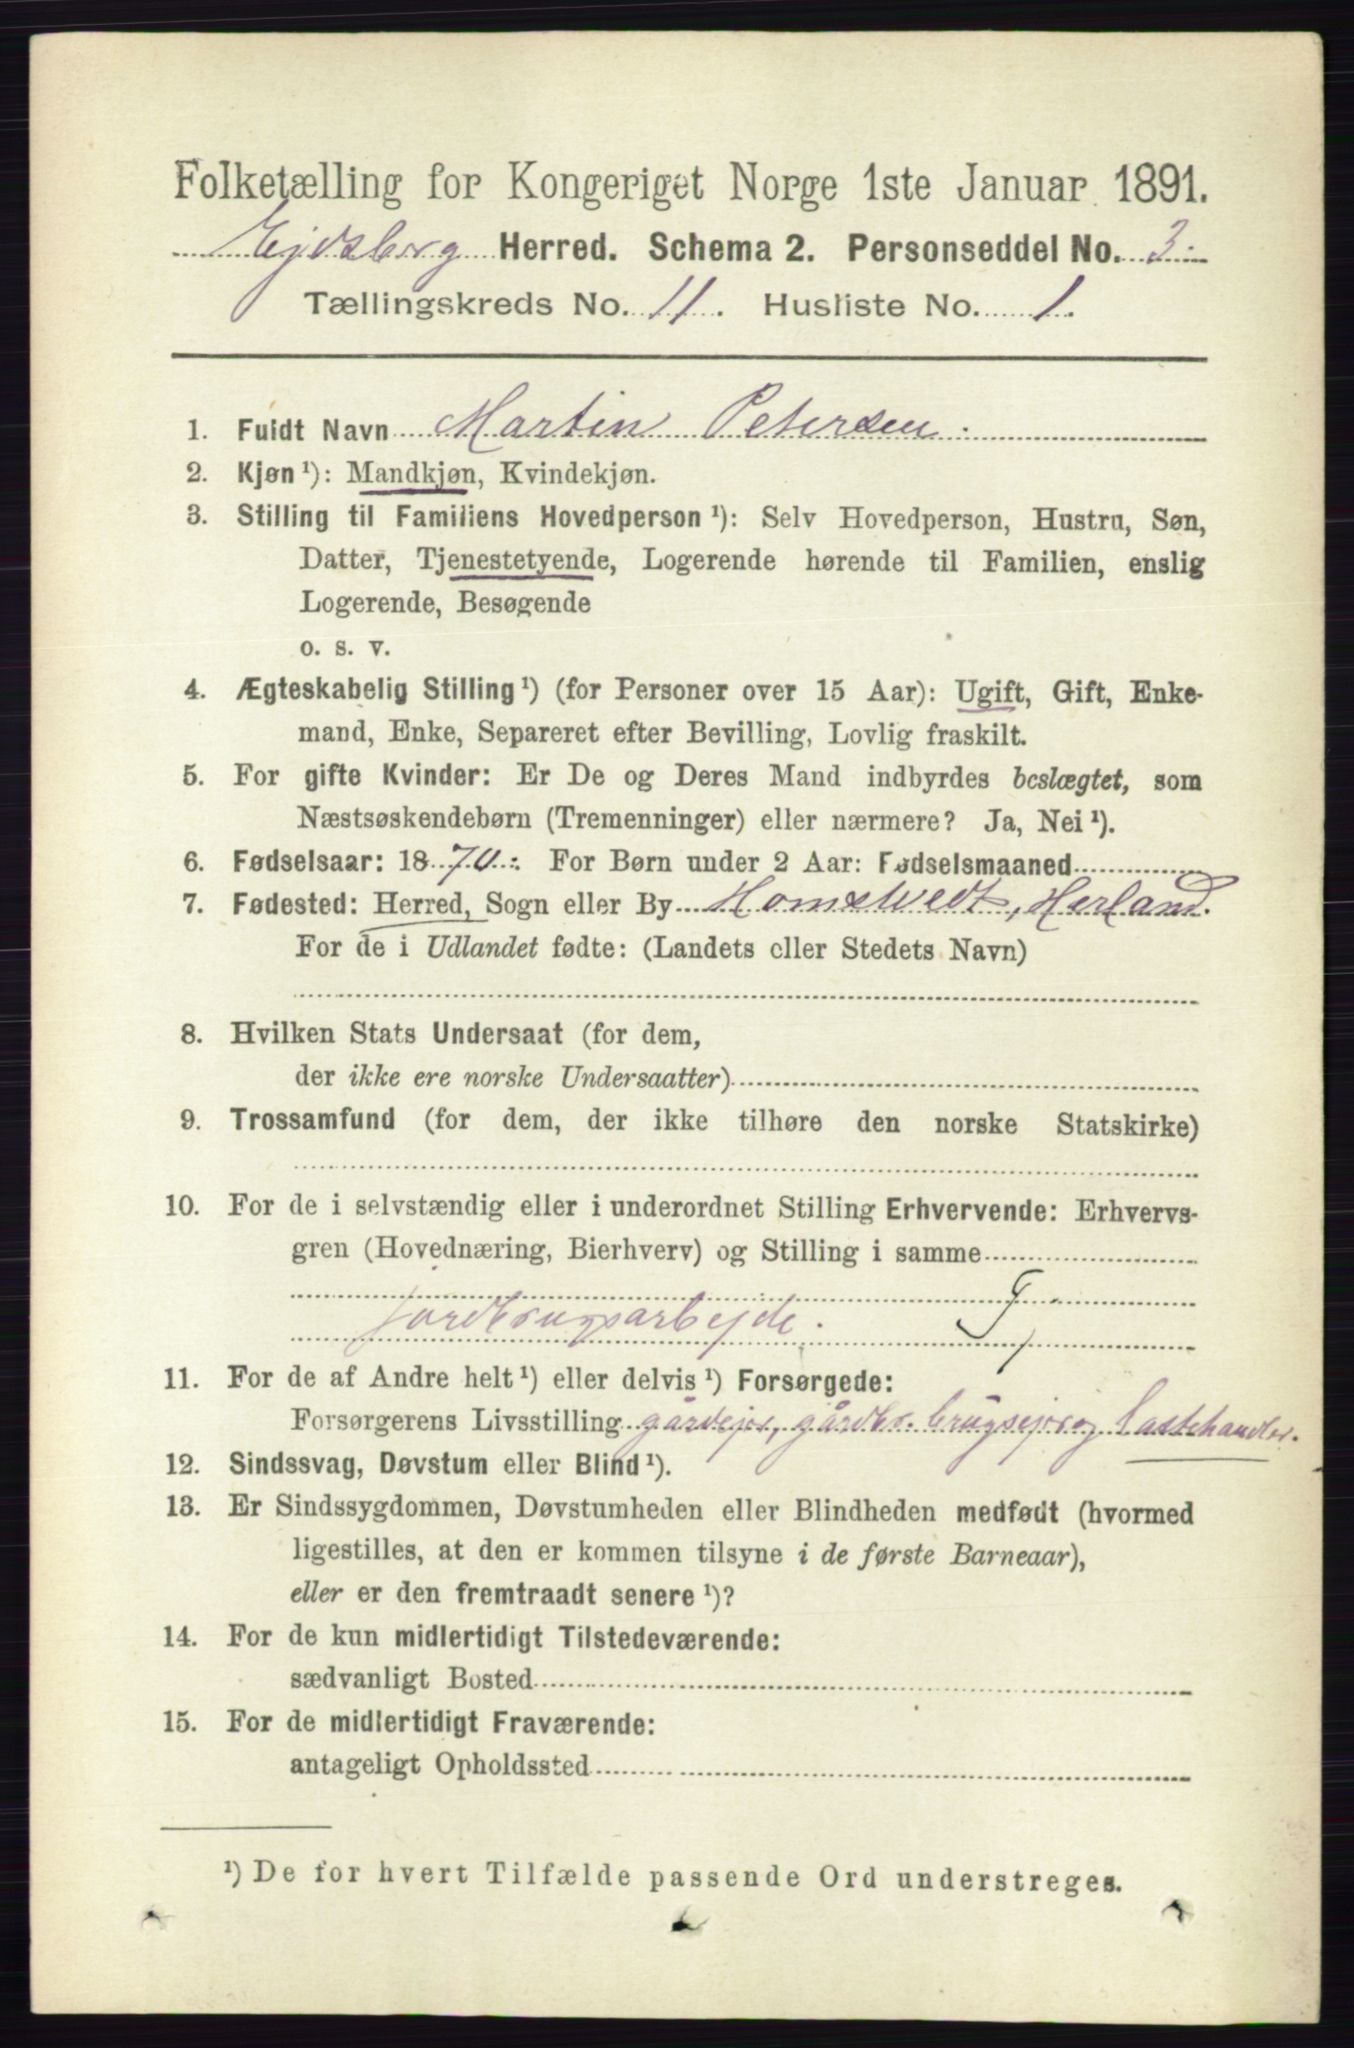 Folketælling for Kongeriget Norge 1ste Januar 1891.
Ejdsberg Herred. Schema 2. Personseddel No. 3
Tællingskreds No. 11. Husliste No. 1.
1. Fuldt Navn Martin Petersen.
2. Kjøn ¹): Mandkjøn, Kvindekjøn.
3. Stilling til Familiens Hovedperson ¹): Selv Hovedperson, Hustru, Søn,
Datter, Tjenestetyende, Logerende hørende til Familien, enslig
Logerende, Besøgende
o. s. v.
4. Ægteskabelig Stilling ¹) (for Personer over 15 Aar): Ugift, Gift, Enke-
mand, Enke, Separeret efter Bevilling, Lovlig fraskilt.
5. For gifte Kvinder: Er De og Deres Mand indbyrdes beslægtet, som
Næstsøskendebørn (Tremenninger) eller nærmere? Ja, Nei ¹).
6. Fødselsaar: 1870. For Børn under 2 Aar: Fødselsmaaned
7. Fødested: Herred, Sogn eller By Homstvedt, Herland.
For de i Udlandet fødte: (Landets eller Stedets Navn)
8. Hvilken Stats Undersaat (for dem,
der ikke ere norske Undersaatter)
9. Trossamfund (for dem, der ikke tilhøre den norske Statskirke)
10. For de i selvstændig eller i underordnet Stilling Erhvervende: Erhvervs-
gren (Hovednæring, Bierhverv) og Stilling i samme
jordbrugsarbejde.
11. For de af Andre helt ¹) eller delvis ¹) Forsørgede:
Forsørgerens Livsstilling gårdejer, gårdbr. brugsejer og Lasthandler.
12. Sindssvag, Døvstum eller Blind ¹).
13. Er Sindssygdommen, Døvstumheden eller Blindheden medfødt (hvormed
ligestilles, at den er kommen tilsyne i de første Barneaar),
eller er den fremtraadt senere ¹)?
14. For de kun midlertidigt Tilstedeværende:
sædvanligt Bosted
15. For de midlertidigt Fraværende:
antageligt Opholdssted
¹) De for hvert Tilfælde passende Ord understreges.